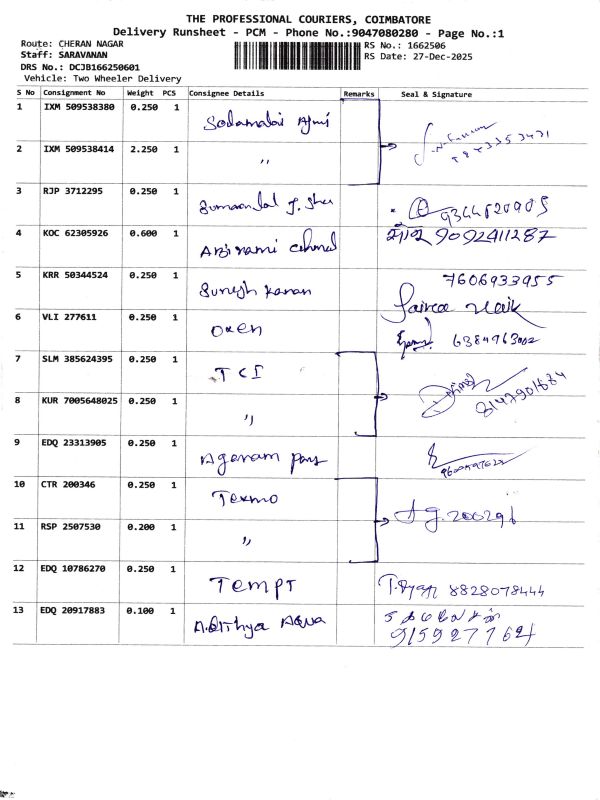 THE PROFESSIONAL COURIERS, COIMBATORE
Delivery Runsheet - PCM - Phone No.:9047080280 - Page No.:1
Route: CHERAN NAGAR
RS No.: 1662506
Staff: SARAVANAN
RS Date: 27-Dec-2025
DRS No.: DCJB166250601
Vehicle: Two Wheeler Delivery
S No Consignment No Weight PCS Consignee Details Remarks Seal & Signature
1 IXM 509538380 0.250 1
2 IXM 509538414 2.250 1 ,,
3 RJP 3712295 0.250 1
4 KOC 62305926 0.600 1 9092411287
5 KRR 50344524 0.250 1 Suresh Kanan 7606933955
6 VLI 277611 0.250 1 Oxen
7 SLM 385624395 0.250 1 TCI
8 KUR 7005648025 0.250 1 ,, 8147901684
9 EDQ 23313905 0.250 1
10 CTR 200346 0.250 1 Texmo
11 RSP 2507530 0.200 1 ,,
12 EDQ 10786270 0.250 1 TEMPT 8828078444
13 EDQ 20917883 0.100 1 Adithya Aqua
9159277627